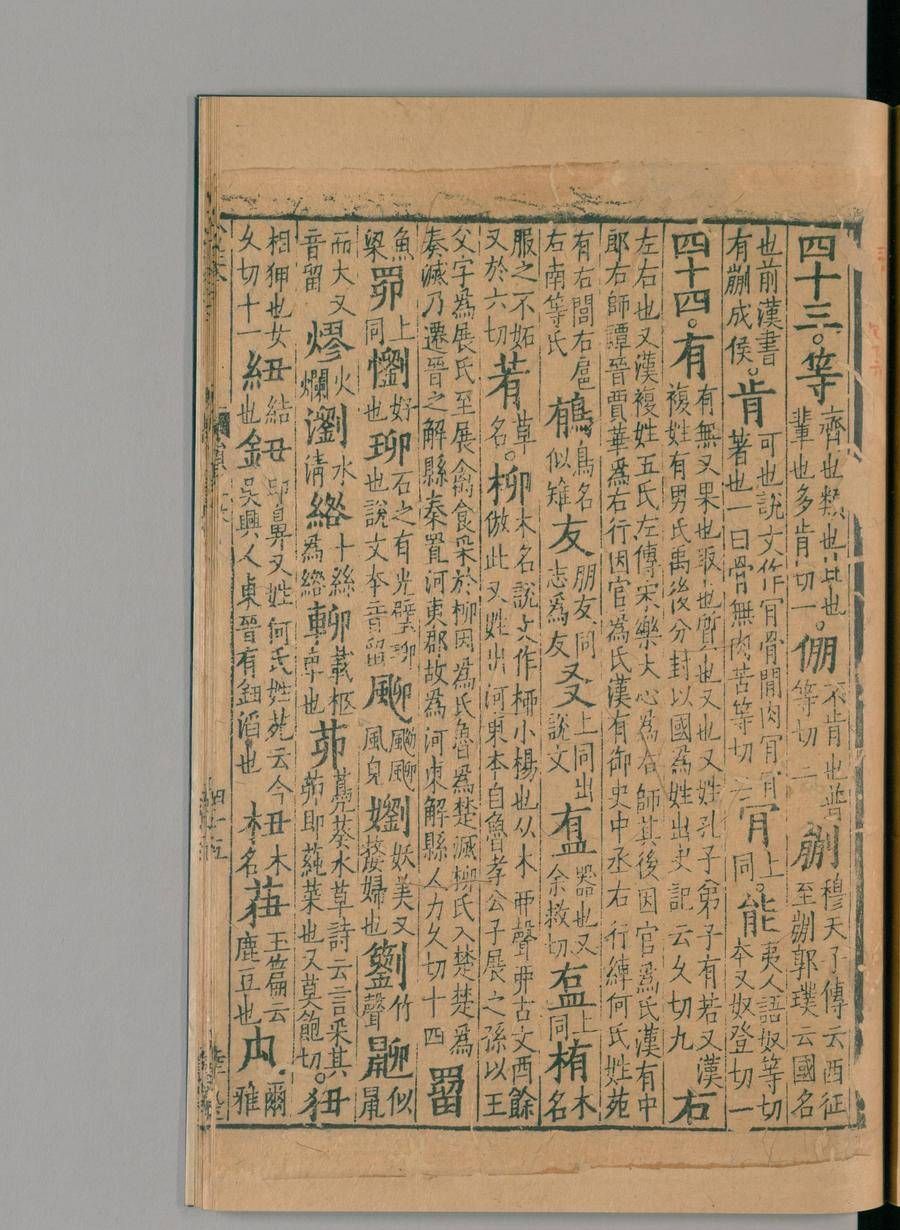 四十三。等齊也類也比也。輩也多肯切一。倗不肯也普等切二䣙穆天子傳云西征至䣙郭璞云國名
也前漢書有䣙成侯。肯可也說文作肎骨間肉肎肎著也一曰骨無肉苦等切二肎上同。能夷人語奴等切本又奴登切一
四十四。有有無又果也取也質也又也又姓孔子弟子有若又漢複姓有男氏禹後分封以國爲姓出史記云久切九右
左右也又漢複姓五氏左傳宋樂大心爲右師其後因官爲氏漢有中郎右師譚晉賈華爲右行因官爲氏漢有御史中丞右行綽何氏姓苑
有右閭右扈右南等氏䳑鳥名似雉友朋友同志爲友㕛上同出說文㿜器也又余救切上同栯木名
服之不妬又於六切草名。柳木名說文作桺小楊也从木丣聲丣古文酉餘倣此又姓出河東本自魯孝公子展之孫以王
父字爲展氏至展禽食采於柳因爲氏魯爲楚滅柳氏入楚楚爲秦滅乃遷晉之解縣秦置河東郡故爲河東解縣人力久切十四罶
魚梁上同懰好也珋石之有光璧珋也說文本音留風身嬼妖美又嫠婦也竹聲似鼠
而大又音留熮火爛瀏水清綹十絲爲綹載柩車也茆鳧葵水草詩云言采其茆即蓴菜也又莫飽切。狃
相狎也女久切十一紐結也鈕印鼻又姓何氏姓苑云今吳興人東晉有鈕滔也杻木名莥玉篇云鹿豆也厹爾雅